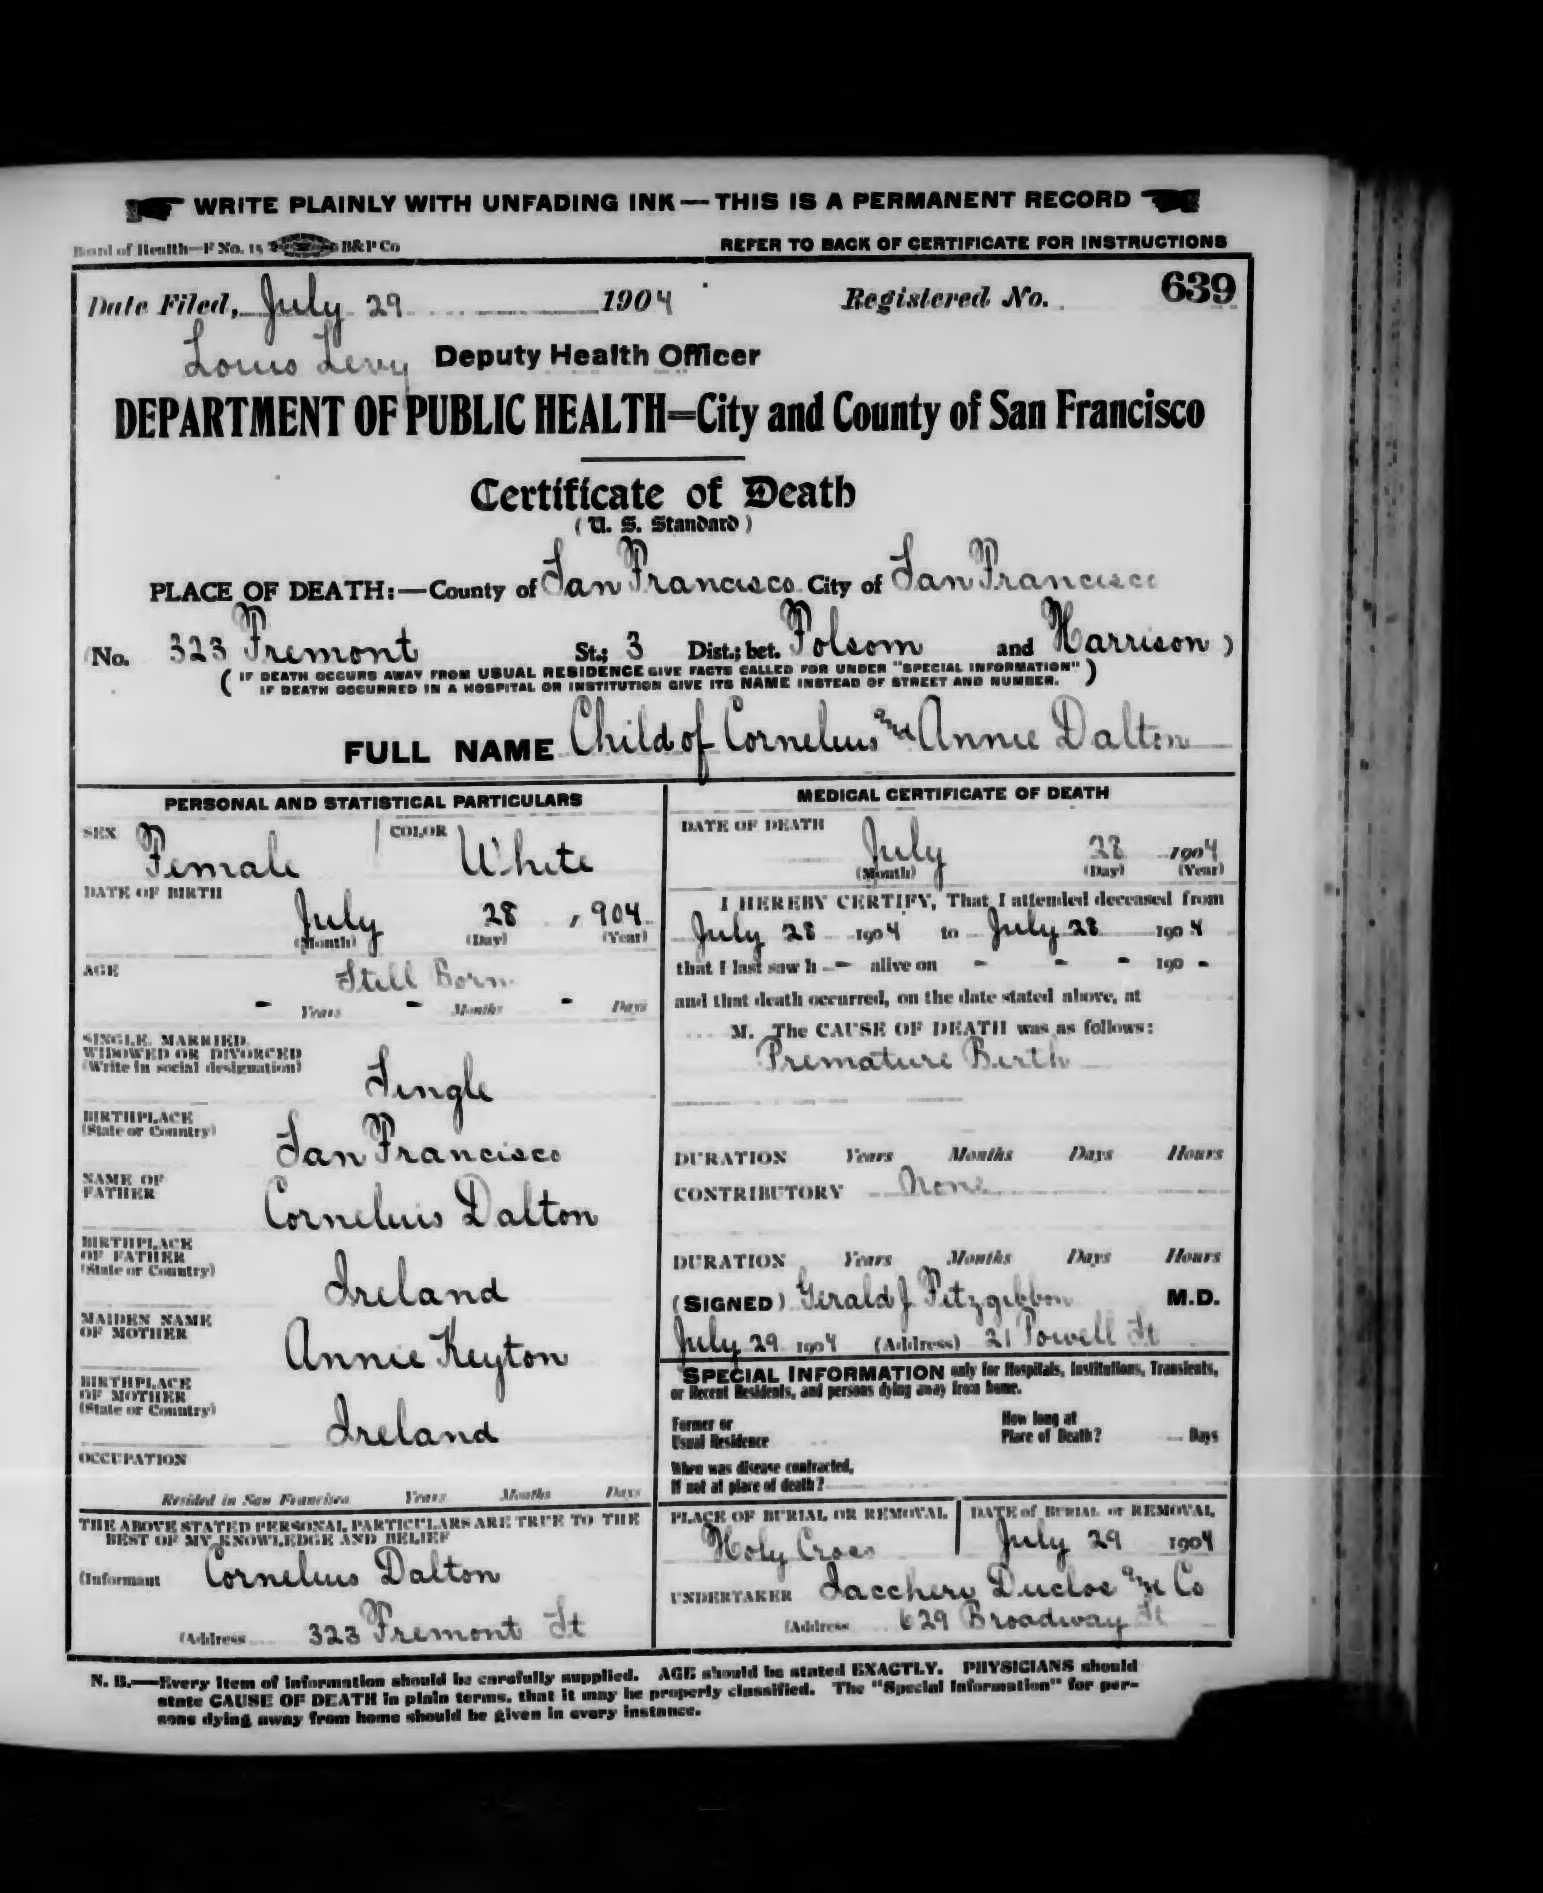 WRITE PLAINLY WITH UNFADING INK—THIS IS A PERMANENT RECORD
Board of Health—F No. 15 B&P Co REFER TO BACK OF CERTIFICATE FOR INSTRUCTIONS
Date Filed, July 29 1904 Registered No. 639
Louis Levy Deputy Health Officer
DEPARTMENT OF PUBLIC HEALTH=City and County of San Francisco
Certificate of Death
(U. S. Standard)
PLACE OF DEATH:—County of San Francisco City of San Francisco
(No. 323 Fremont St.; 3 Dist.; bet. Folsom and Harrison )
( IF DEATH OCCURS AWAY FROM USUAL RESIDENCE GIVE FACTS CALLED FOR UNDER "SPECIAL INFORMATION" )
IF DEATH OCCURRED IN A HOSPITAL OR INSTITUTION GIVE ITS NAME INSTEAD OF STREET AND NUMBER.
FULL NAME Child of Cornelius and Annie Dalton
PERSONAL AND STATISTICAL PARTICULARS
SEX Female COLOR White
DATE OF BIRTH
July 28 , 904
(Month) (Day) (Year)
AGE Still Born
- Years - Months - Days
SINGLE, MARRIED,
WIDOWED OR DIVORCED
(Write in social designation) Single
BIRTHPLACE
(State or Country) San Francisco
NAME OF
FATHER Cornelius Dalton
BIRTHPLACE
OF FATHER
(State or Country) Ireland
MAIDEN NAME
OF MOTHER Annie Keyton
BIRTHPLACE
OF MOTHER
(State or Country) Ireland
OCCUPATION
Resided in San Francisco Years Months Days
THE ABOVE STATED PERSONAL PARTICULARS ARE TRUE TO THE
BEST OF MY KNOWLEDGE AND BELIEF
(Informant Cornelius Dalton
(Address 323 Fremont St
MEDICAL CERTIFICATE OF DEATH
DATE OF DEATH
July 28 1904
(Month) (Day) (Year)
I HEREBY CERTIFY, That I attended deceased from
July 28 1904 to July 28 1904
that I last saw h - alive on - - - 190 -
and that death occurred, on the date stated above, at
M. The CAUSE OF DEATH was as follows:
Premature Birth
DURATION Years Months Days Hours
CONTRIBUTORY None
DURATION Years Months Days Hours
(SIGNED) Gerald J Fitzgibbon M.D.
July 29 1904 (Address) 21 Powell St
SPECIAL INFORMATION only for Hospitals, Institutions, Transients,
or Recent Residents, and persons dying away from home.
Former or
Usual Residence
How long at
Place of Death? Days
When was disease contracted,
If not at place of death?
PLACE OF BURIAL OR REMOVAL
Holy Cross
DATE of BURIAL or REMOVAL
July 29 1904
UNDERTAKER Iaccheri Duclos and Co
(Address 629 Broadway St
N. B.—Every item of information should be carefully supplied. AGE should be stated EXACTLY. PHYSICIANS should
state CAUSE OF DEATH in plain terms, that it may be properly classified. The "Special Information" for per-
sons dying away from home should be given in every instance.